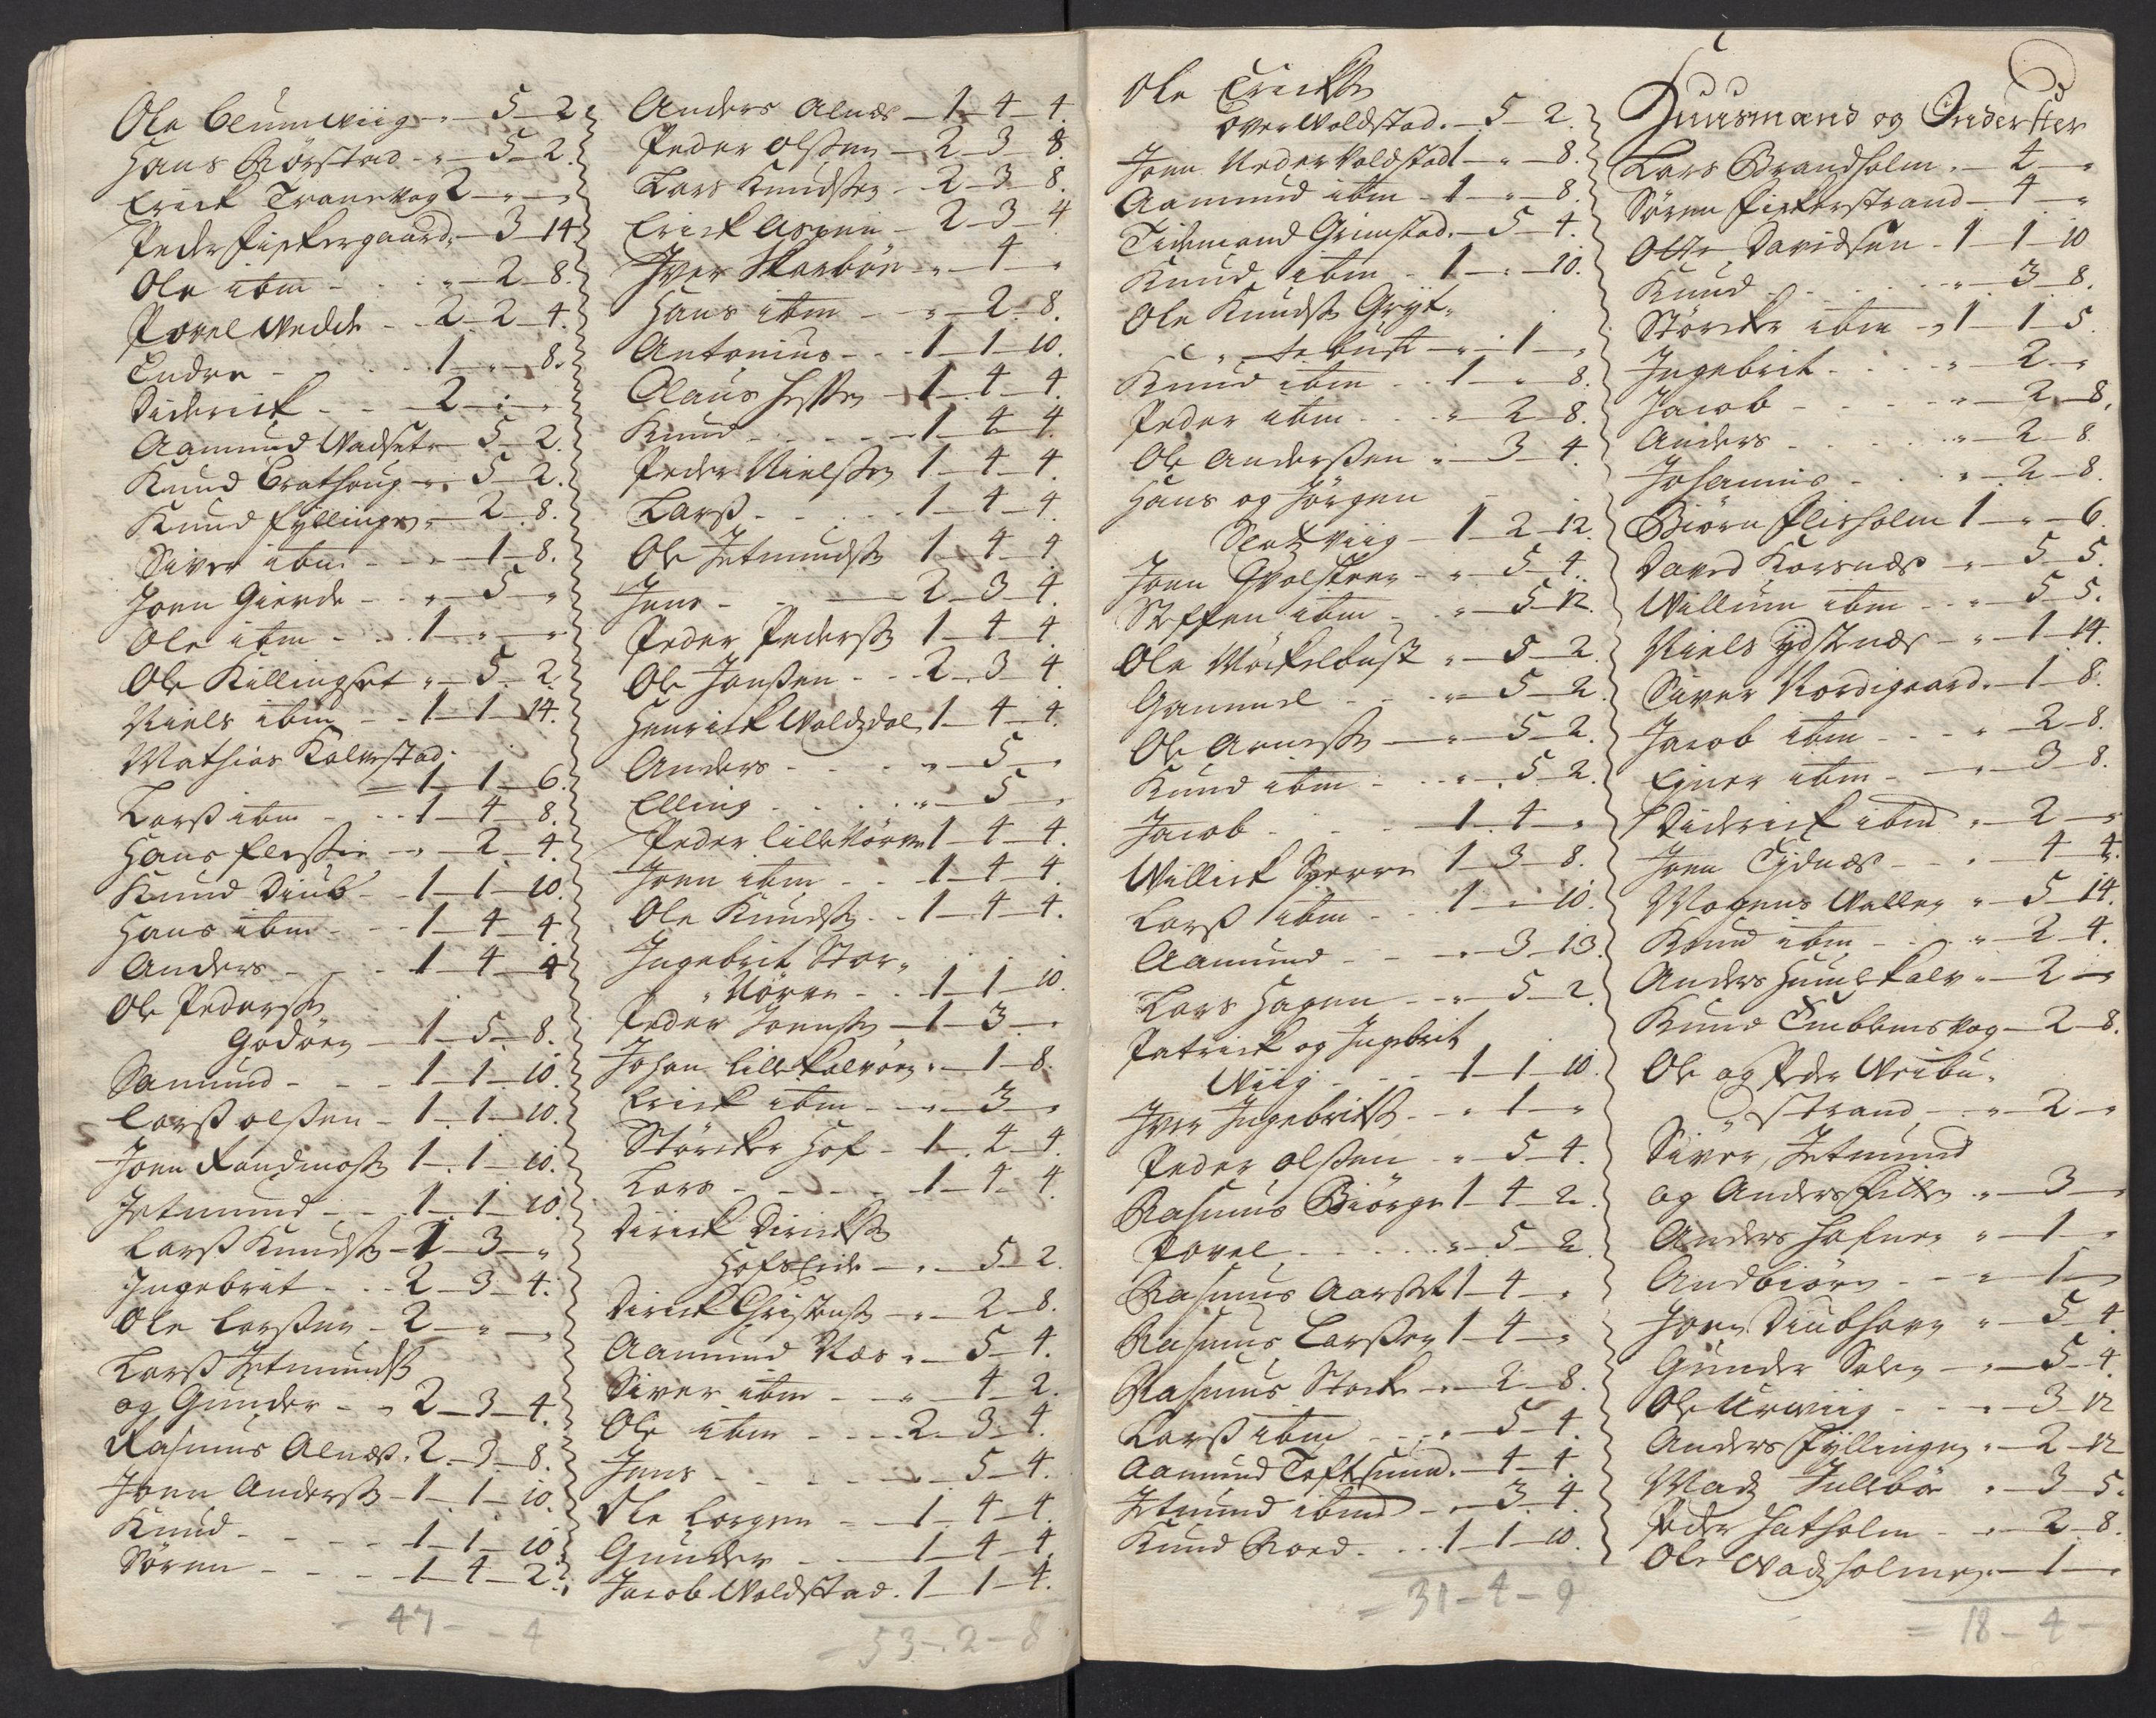 Ole Blumwiig - „ - 5 - 2
Hans Rörstad - „ - 5 - 2.
Erick Tranevog 2 - „ - „
Peder Fiskergaard „ - 3 - 14
Ole ibm - „ - 2 - 8.
Povel Wedde - 2 - 2 - 4.
Endre - 1 - „ - 8.
Diderick - 2 - „ - „
Aamund Wadset „ - 5 - 2.
Knud Brathoug - „ - 5 - 2.
Knud Fyllingen „ - 2 - 8.
Siver ibm - „ - 1 - 8.
Joen Gierde - „ - 5 - „
Ole ibm - 1 - „ - „
Ole Killingset „ - 5 - 2.
Niels ibm - 1 - 1 - 14.
Mathias Kalvestad
= 1 - 1 - 6.
Larß ibm - 1 - 4 - 8.
Hans - „ - 2 - 4.
Knud Diub - 1 - 1 - 10.
Hans ibm - 1 - 4 - 4
Anders - 1 - 4 - 4
Ole Pederß
Godöen - 1 - 5 - 8.
Samund - 1 - 1 - 10.
Larß olßen - 1 - 1 - 10.
Joen 1 - 1 - 10.
Jetmund - 1 - 1 - 10.
Larß Knudß - 1 - 3 - „
Ingebrit - 2 - 3 - 4.
Ole Larßen - 2 - „ - „
Larß Jetmundß
og Gunder - 2 - 3 - 4.
Rasmus Alnæs. 2 - 3 - 8.
Joen Anderß - 1 - 1 - 10.
Knud - 1 - 1 - 10
Sören - 1 - 4 - 2
= 47 - - 4
Anders Alnæs - 1 - 4 - 4.
Peder olßen - 2 - 3 - 8.
Lars Knudßen - 2 - 3 - 8.
Erick Aspen - 2 - 3 - 4
Iver Skarbön - „ - 4 - „
Hans ibm - „ - 2 - 8.
Antonius - 1 - 1 - 10.
Claus - 1 - 4 - 4.
Knud - 1 - 4 - 4.
Peder Nielßen 1 - 4 - 4
Larß - 1 - 4 - 4.
Ole Jetmundß 1 - 4 - 4
Jens - 2 - 3 - 4.
Peder Pederß 1 - 4 - 4.
Ole Janßen - 2 - 3 - 4
Henrick Woldzdal 1 - 4 - 4.
Anders - „ - 5 - „
Elling - „ - 5 - „
Peder lille Vörren 1 - 4 - 4.
Joen ibm - 1 - 4 - 4.
Ole Knudß - 1 - 4 - 4.
Ingebrit Stor„
„ Vörren - 1 - 1 - 10.
Peder Joenß - 1 - 3 - „
Johan lille Kalvöen „ - 1 - 8.
Erick ibm - „ - 3 - „
Störcker Hof - 1 - 4 - 4.
Lars - 1 - 4 - 4.
Dirick Dirickß
Hofs Eide - „ - 5 - 2.
Dirick Christenß - „ - 2 - 8.
Aamund Næs „ - 5 - 4.
Siver ibm - „ - 4 - 2.
Ole ibm - 2 - 3 - 4.
Jens - „ - 5 - 4.
Ole Lorgen - 1 - 4 - 4.
Gunder - 1 - 4 - 4.
Jacob Woldstad. 1 - 1 - 4.
= 53 - 2 - 8
Ole Erickß
Over Woldstad. - 5 - 2.
Joen Neder Voldstad 1 - „ - 8.
Aamund ibm - 1 - „ - 8.
Tidemand Grimstad. - 5 - 4.
Knud ibm - 1 - „ - 10.
Ole Knudß Gryt„
„ te bust - „ - 1 - „
Knud ibm - 1 - „ - 8.
Peder ibm - „ - 2 - 8.
Ole Anderßen „ - 3 - 4.
Hans og Jörgen
Slotzviig - 1 - 2 - 12.
Joen - „ - 5 - 4.
Steffen ibm - „ - 5 - 12.
Ole Möckelbust „ - 5 - 2.
Gammel - „ - 5 - 2.
Ole Arneß - „ - 5 - 2.
Knud ibm - „ - 5 - 2.
Jacob - 1 - 4 - „
Willick Sperre 1 - 3 - 8.
Larß ibm - 1 - „ - 10.
Aamund - „ - 3 - 13.
Lars Hagen - „ - 5 - 2.
Patrick og Ingebrit
Wiig - 1 - 1 - 10.
Iver Ingebritß - „ - 1 - „
Peder olßen - „ - 5 - 4.
Rasmus Biörge 1 - 4 - 2.
Povel - „ - 5 - 2
Rasmus Aarset 1 - 4 - „
Rasmus Larßen 1 - 4 - „
Rasmus Stocke - „ - 2 - 8.
Larß ibm - „ - 5 - 4.
Aamund Toftsund. - 4 - 4.
Jetmund ibm - „ - 3 - 4.
Knud Roed - 1 - 1 - 10.
= 31 - 4 - 9.
Huusmænd og Inderster
Lars Brandholm - 4 - „
Sören Fiskerstrand - 4 - „
Otte Davidsen - 1 - 1 - 10
Knud - „ - 3 - 8.
Störcker ibm - 1 - 1 - 5.
Ingebrit - „ - 2 - „
Jacob - „ - 2 - 8.
Anders - „ - 2 - 8
Johannis - „ - 2 - 8.
Biörn Flisholm 1 - „ - 6.
David Korsnæs - „ - 5 - 5.
Willum ibm - „ - 5 - 5.
Niels Ydstnæs - „ - 1 - 14.
Siver Nordigaard. - 1 - 8.
Jacob ibm - „ - 2 - 8.
Einer ibm - „ - 3 - 8.
Diderick ibm „ - 2 - „
Joen Eidnæs - „ - 4 - 4.
Mogens Wallen „ - 5 - 14.
Knud ibm - „ - 2 - 4.
Anders Humlekalv „ - 2 - „
Knud Emblemsvog - 2 - 8.
Ole og Peder Weibu„
„ strand - „ - 2 - „
Siver, Jetmund
og Anders „ - 3 - „
Anders „ - 1 - „
Andbiörn - „ - 1 - „
Joen Diubhavn „ - 5 - 4
Gunder - „ - 5 - 4
Ole Urwiig - „ - 3 - 12
Anders Fyllingen „ - 2 - 12
Madz Jullebö „ - 3 - 5.
Peder Hatholm - „ - 2 - 8.
Ole Vadzholmen „ - 1 - „
= 18 - 4 -